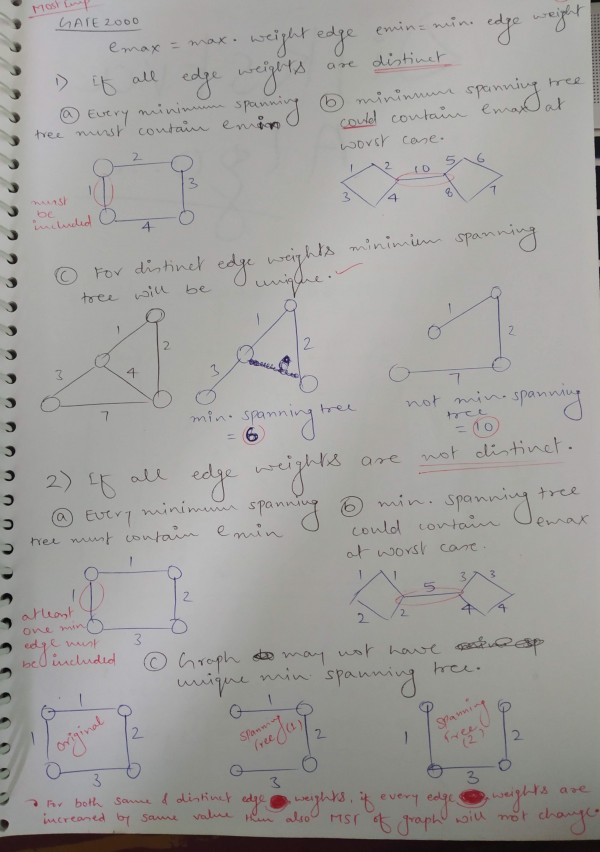 Most Imp
GATE 2000
emax = max. weight edge emin = min. edge weight
1) If all edge weights are distinct
(a) Every minimum spanning
tree must contain emin
(b) minimum spanning tree
could contain emax at
worst case.
2
1
3
4
must
be
included
1 2 10 5 6
3 4 8 7
(c) For distinct edge weights minimum spanning
tree will be unique.
1
2
3 4
7
1
2
3
min. spanning tree
= 6
1
2
7
not min. spanning
tree
= 10
2) If all edge weights are not distinct.
(a) Every minimum spanning
tree must contain emin
(b) min. spanning tree
could contain emax
at worst case.
1
1
2
3
atleast
one min
edge must
be included
1 1 5 3 3
2 2 4 4
(c) Graph may not have
unique min spanning tree.
1
1 original 2
3
1
spanning
tree (1)
2
3
spanning
tree
(2)
1 2
3
→ For both same & distinct edge weights, if every edge weights are
increased by same value then also MST of graph will not change.